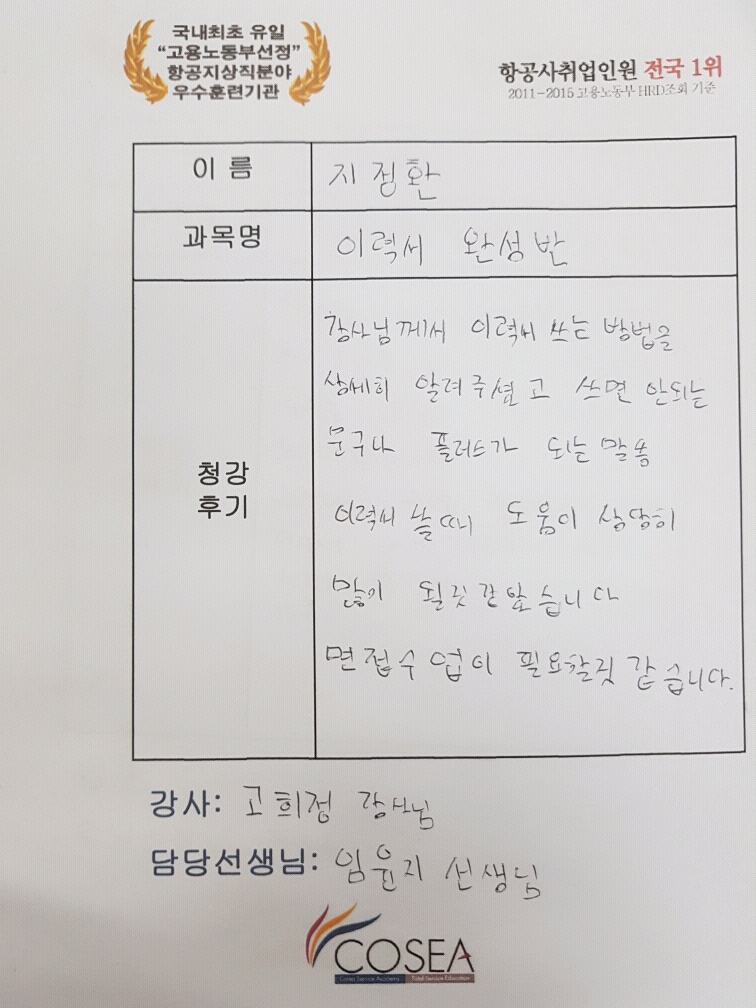 국내최초 유일
"고용노동부선정"
항공지상직분야
우수훈련기관
항공사취업인원 전국 1위
2011-2015 고용노동부 HRD조회 기준
이 름
지정환
과목명
이력서 완성반
청강
후기
강사님께서 이력서 쓰는 방법을
상세히 알려주셨고 쓰면 안되는
문구나 플러스가 되는 말씀
이력서 쓸때 도움이 상당히
많이 될것 같았습니다
면접수업이 필요할것 같습니다.
강사: 고희정 강사님
담당선생님: 임윤지 선생님
COSEA
Cosea Service Academy Total Service Education